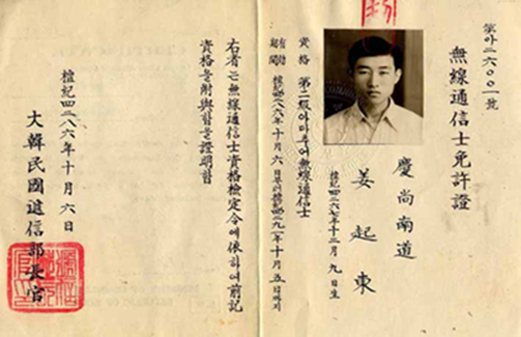 第아二六〇〇一號
無線通信士免許證
慶尚南道
姜起東
檀紀四二六七年十二月九日生
資格 第二級아마추어無線通信士
有効期間 檀紀四二八六年十月六日부터檀紀四二九一年十月五日까지
右者는無線通信士資格檢定令에依하여前記
資格을附與함을證明함
檀紀四二八六年十月六日
大韓民國遞信部長官